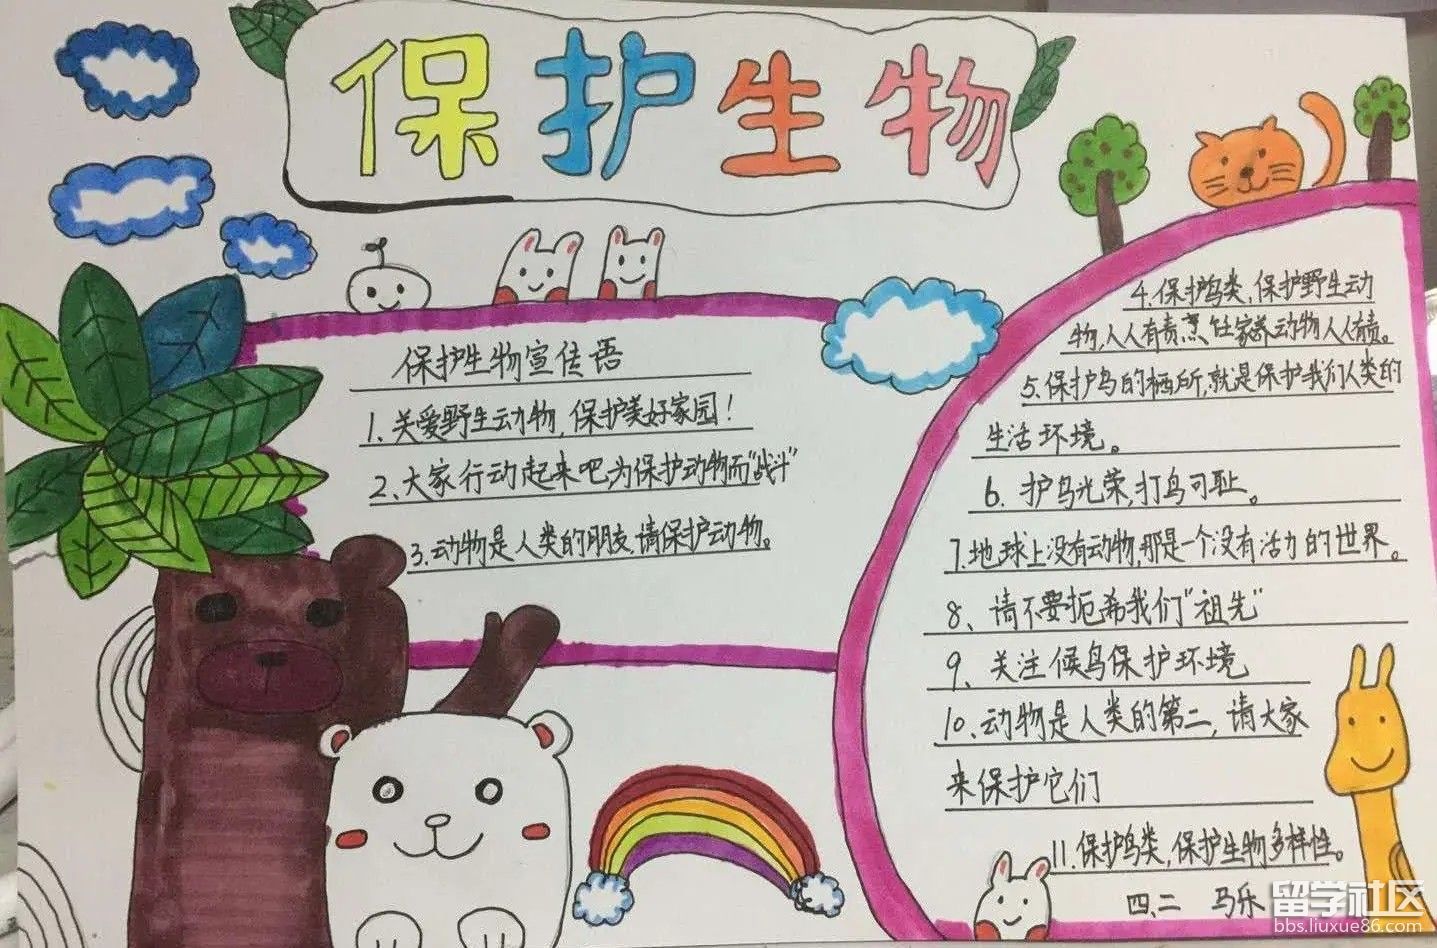 保护生物
保护生物宣传语
1、关爱野生动物,保护美好家园!
2、大家行动起来吧,为保护动物而"战斗"
3、动物是人类的朋友,请保护动物。
4、保护鸟类,保护野生动
物,人人有责,烹饪家养动物人人有责。
5、保护鸟的栖所,就是保护我们人类的
生活环境。
6、护鸟光荣,打鸟可耻。
7、地球上没有动物,那是一个没有活力的世界。
8、请不要扼杀我们"祖先"
9、关注候鸟保护环境
10、动物是人类的第二,请大家
来保护它们
11、保护鸟类,保护生物多样性。
四、二 马乐
留学社区
bbs.liuxue86.com